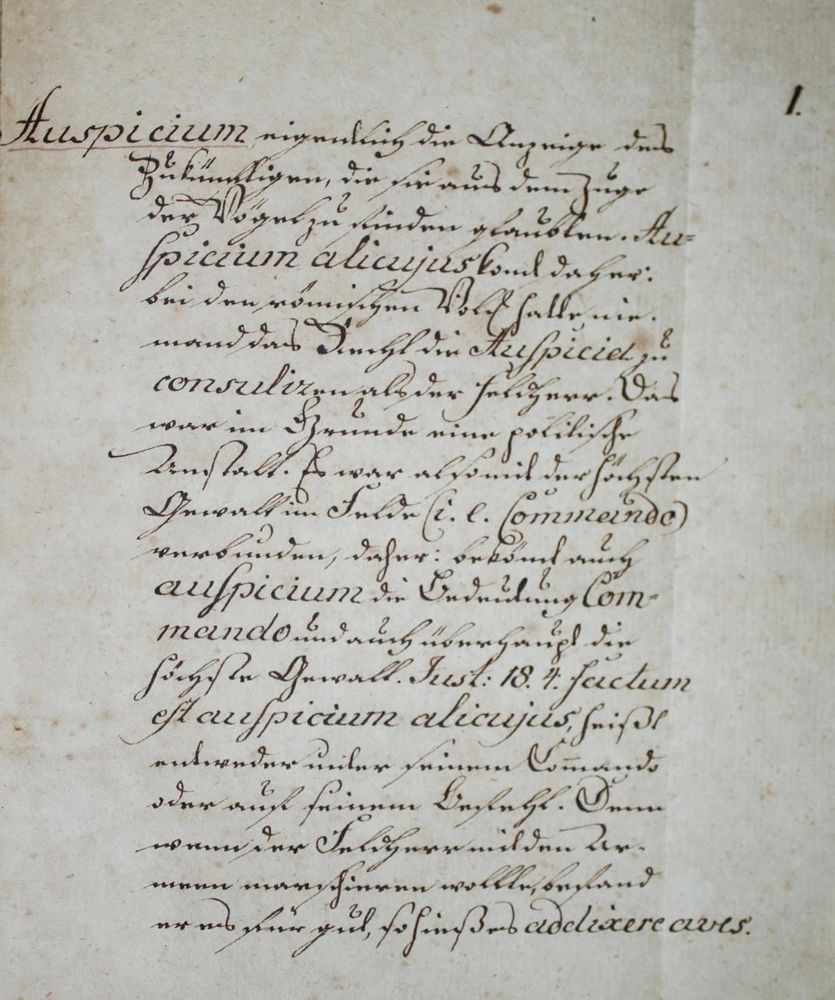 1.
Auspicium eigentlich die Anzeige des
Zukünftigen, die sie aus dem Zuge
der Vögel zu finden glaubten. Au-
spicium alicujus komt daher:
bei den römischen Volk hatte nie-
mand das Recht die Auspicia zu
consuliren als der Feldherr. Das
war im Grunde eine politische
Anstalt. Es war also mit der höchsten
Gewalt im Felde (i. e. Commando)
verbunden, daher: bekömt auch
auspicium die Bedeutung Com-
mando und auch überhaupt die
höchste Gewalt. Just: 18. 4. factum
est auspicium alicujus, heißt
entweder unter seinem Com̄ando
oder auf seinem Befehl. Denn
wenn der Feldherr mit den Ar-
meen marschieren wollte, befand
er es für gut, so hieß es addixere aves.